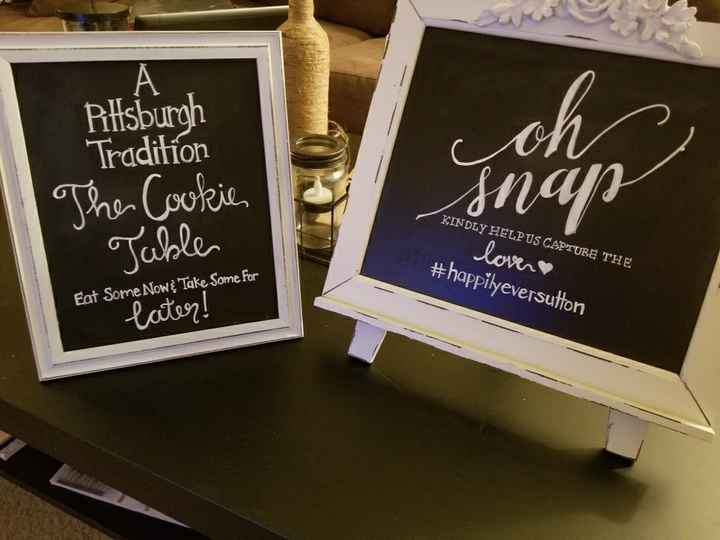 A
Pittsburgh
Tradition
The Cookie
Table
Eat Some Now & Take Some For
Later!
oh
snap
KINDLY HELP US CAPTURE THE
love ♥
#happilyeversutton